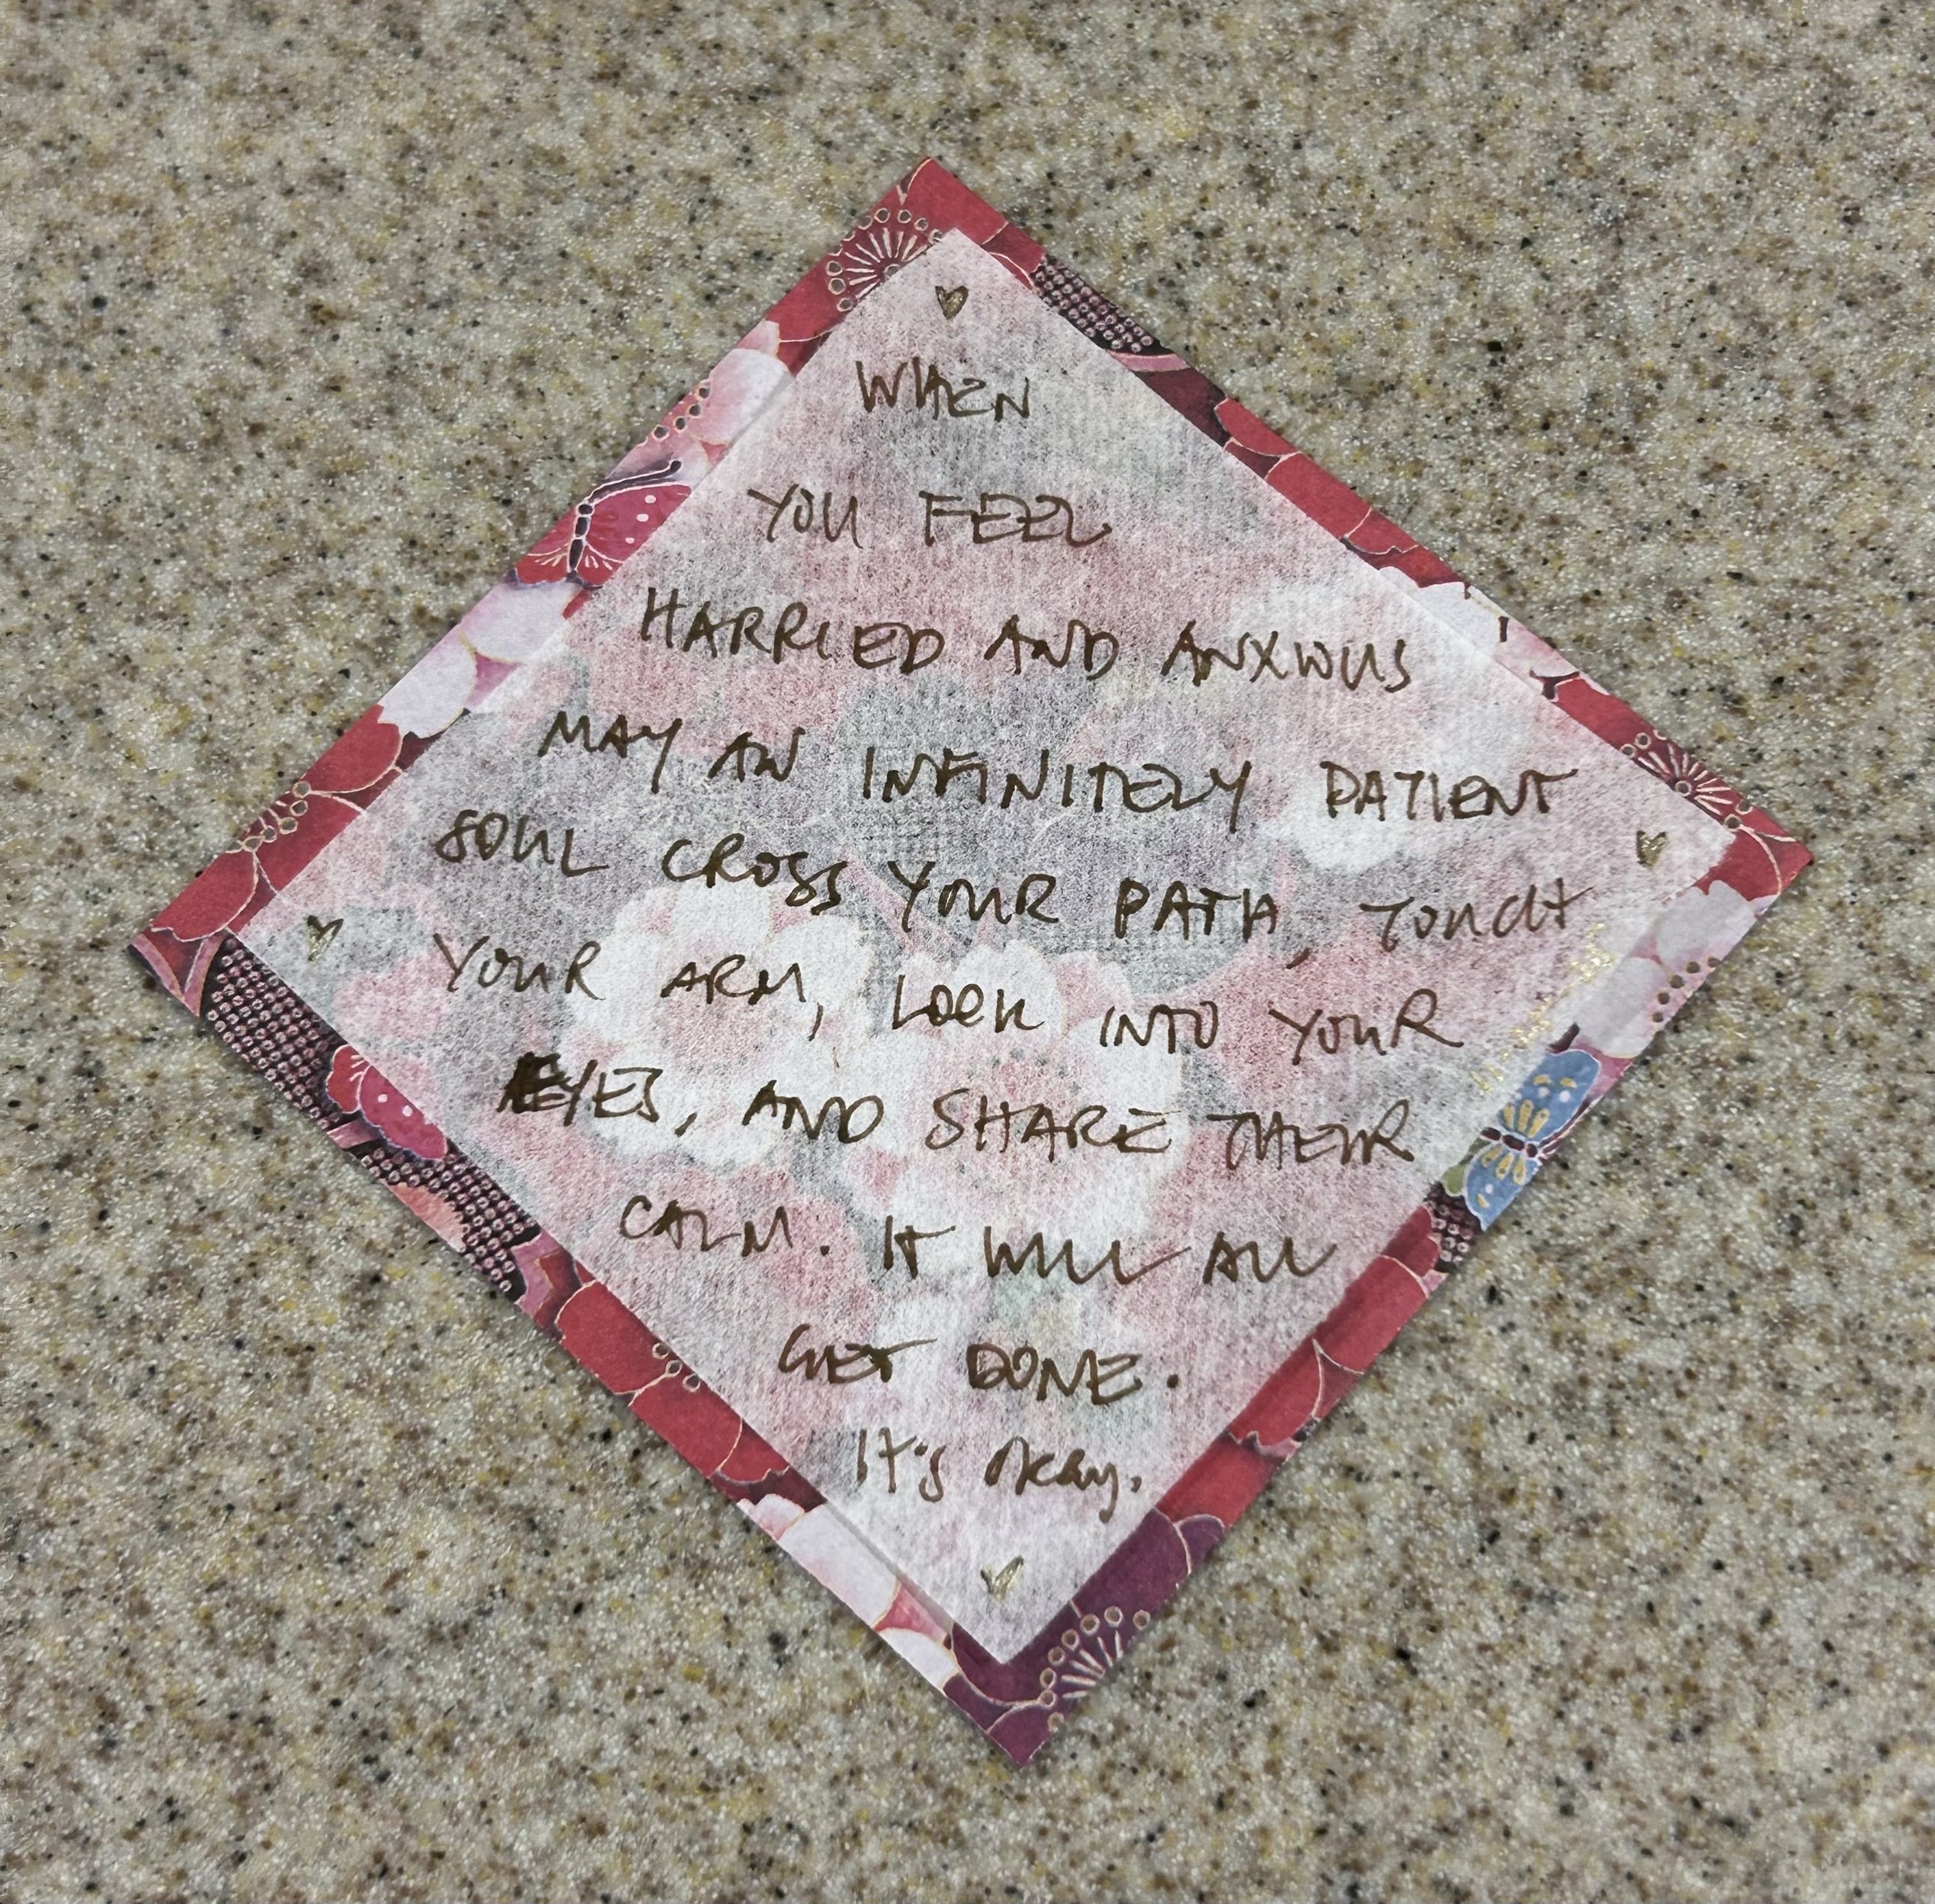 WHEN
YOU FEEL
HARRIED AND ANXIOUS
MAY AN INFINITELY PATIENT
SOUL CROSS YOUR PATH, TOUCH
YOUR ARM, LOOK INTO YOUR
EYES, AND SHARE THEIR
CALM. IT WILL ALL
GET DONE.
It's okay.